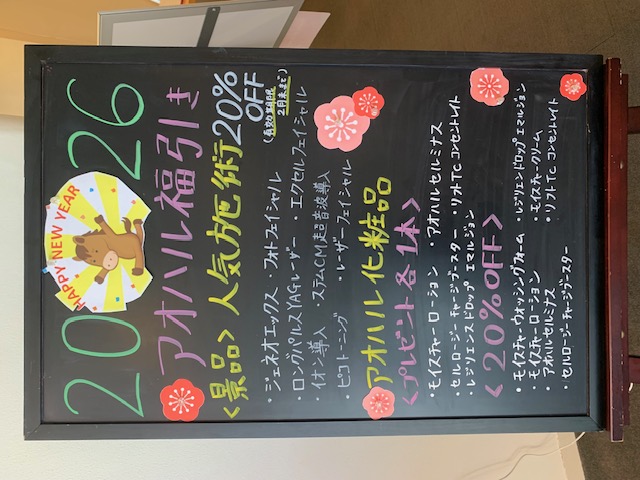 2026
HAPPY NEW YEAR
アオハル福引き
<景品> 人気施術20%OFF
(有効期限 2月末まで)
・ジェネオエックス ・フォトフェイシャル
・ロングパルスYAGレーザー ・エクセルフェイシャル
・イオン導入 ・ステムCM超音波導入
・ピコトーニング ・レーザーフェイシャル
アオハル化粧品
<プレゼント各1本>
・モイスチャーローション ・アオハルセルミナス
・セルロジーチャージブースター ・リフトTCコンセントレイト
・レジリエンスドロップエマルジョン
<20%OFF>
・モイスチャーウォッシングフォーム ・レジリエンドロップエマルジョン
・モイスチャーローション ・モイスチャークリーム
・アオハルセルミナス ・リフトTCコンセントレイト
・セルロジーチャージブースター